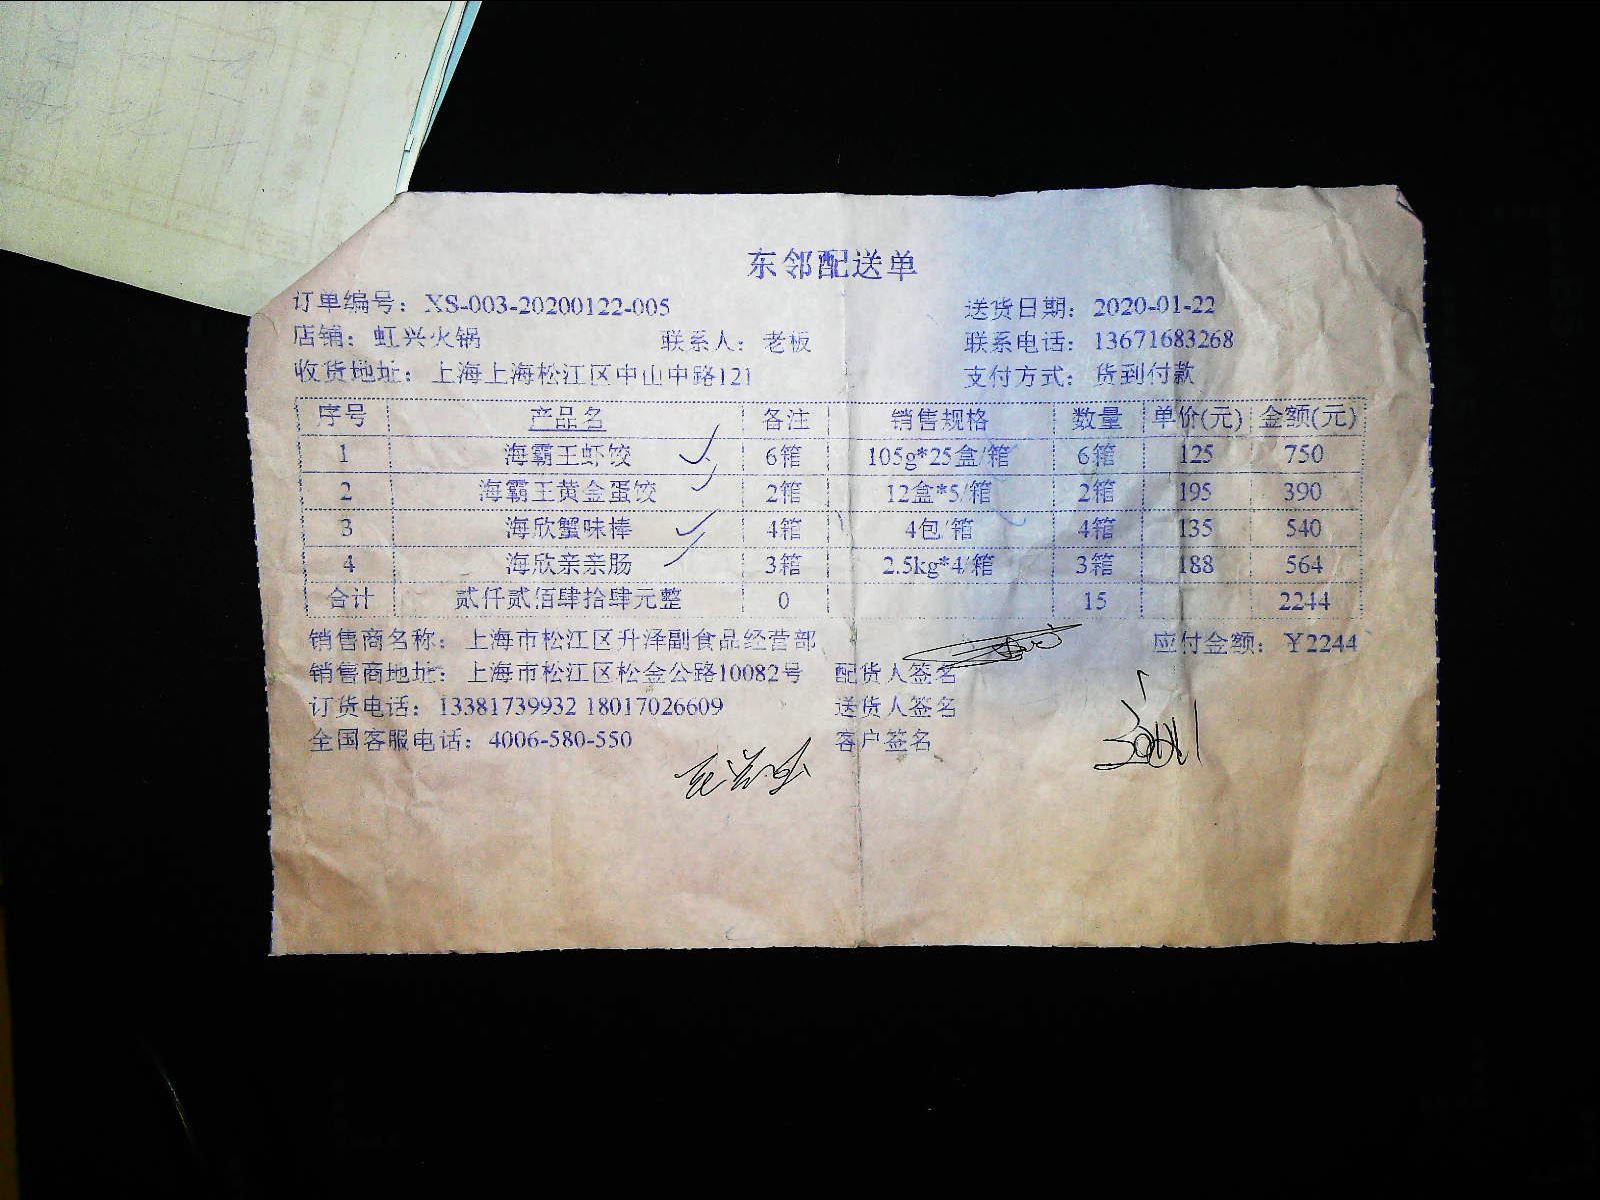 东邻配送单
订单编号：XS-003-20200122-005 送货日期：2020-01-22
店铺：虹兴火锅 联系人：老板 联系电话：13671683268
收货地址：上海上海松江区中山中路121 支付方式：货到付款
序号 产品名 备注 销售规格 数量 单价(元) 金额(元)
1 海霸王虾饺 6箱 105g*25盒/箱 6箱 125 750
2 海霸王黄金蛋饺 2箱 12盒*5/箱 2箱 195 390
3 海欣蟹味棒 4箱 4包/箱 4箱 135 540
4 海欣亲亲肠 3箱 2.5kg*4/箱 3箱 188 564
合计 贰仟贰佰肆拾肆元整 0 15 2244
销售商名称：上海市松江区升泽副食品经营部 应付金额：¥2244
销售商地址：上海市松江区松金公路10082号 配货人签名
订货电话：13381739932 18017026609 送货人签名
全国客服电话：4006-580-550 客户签名